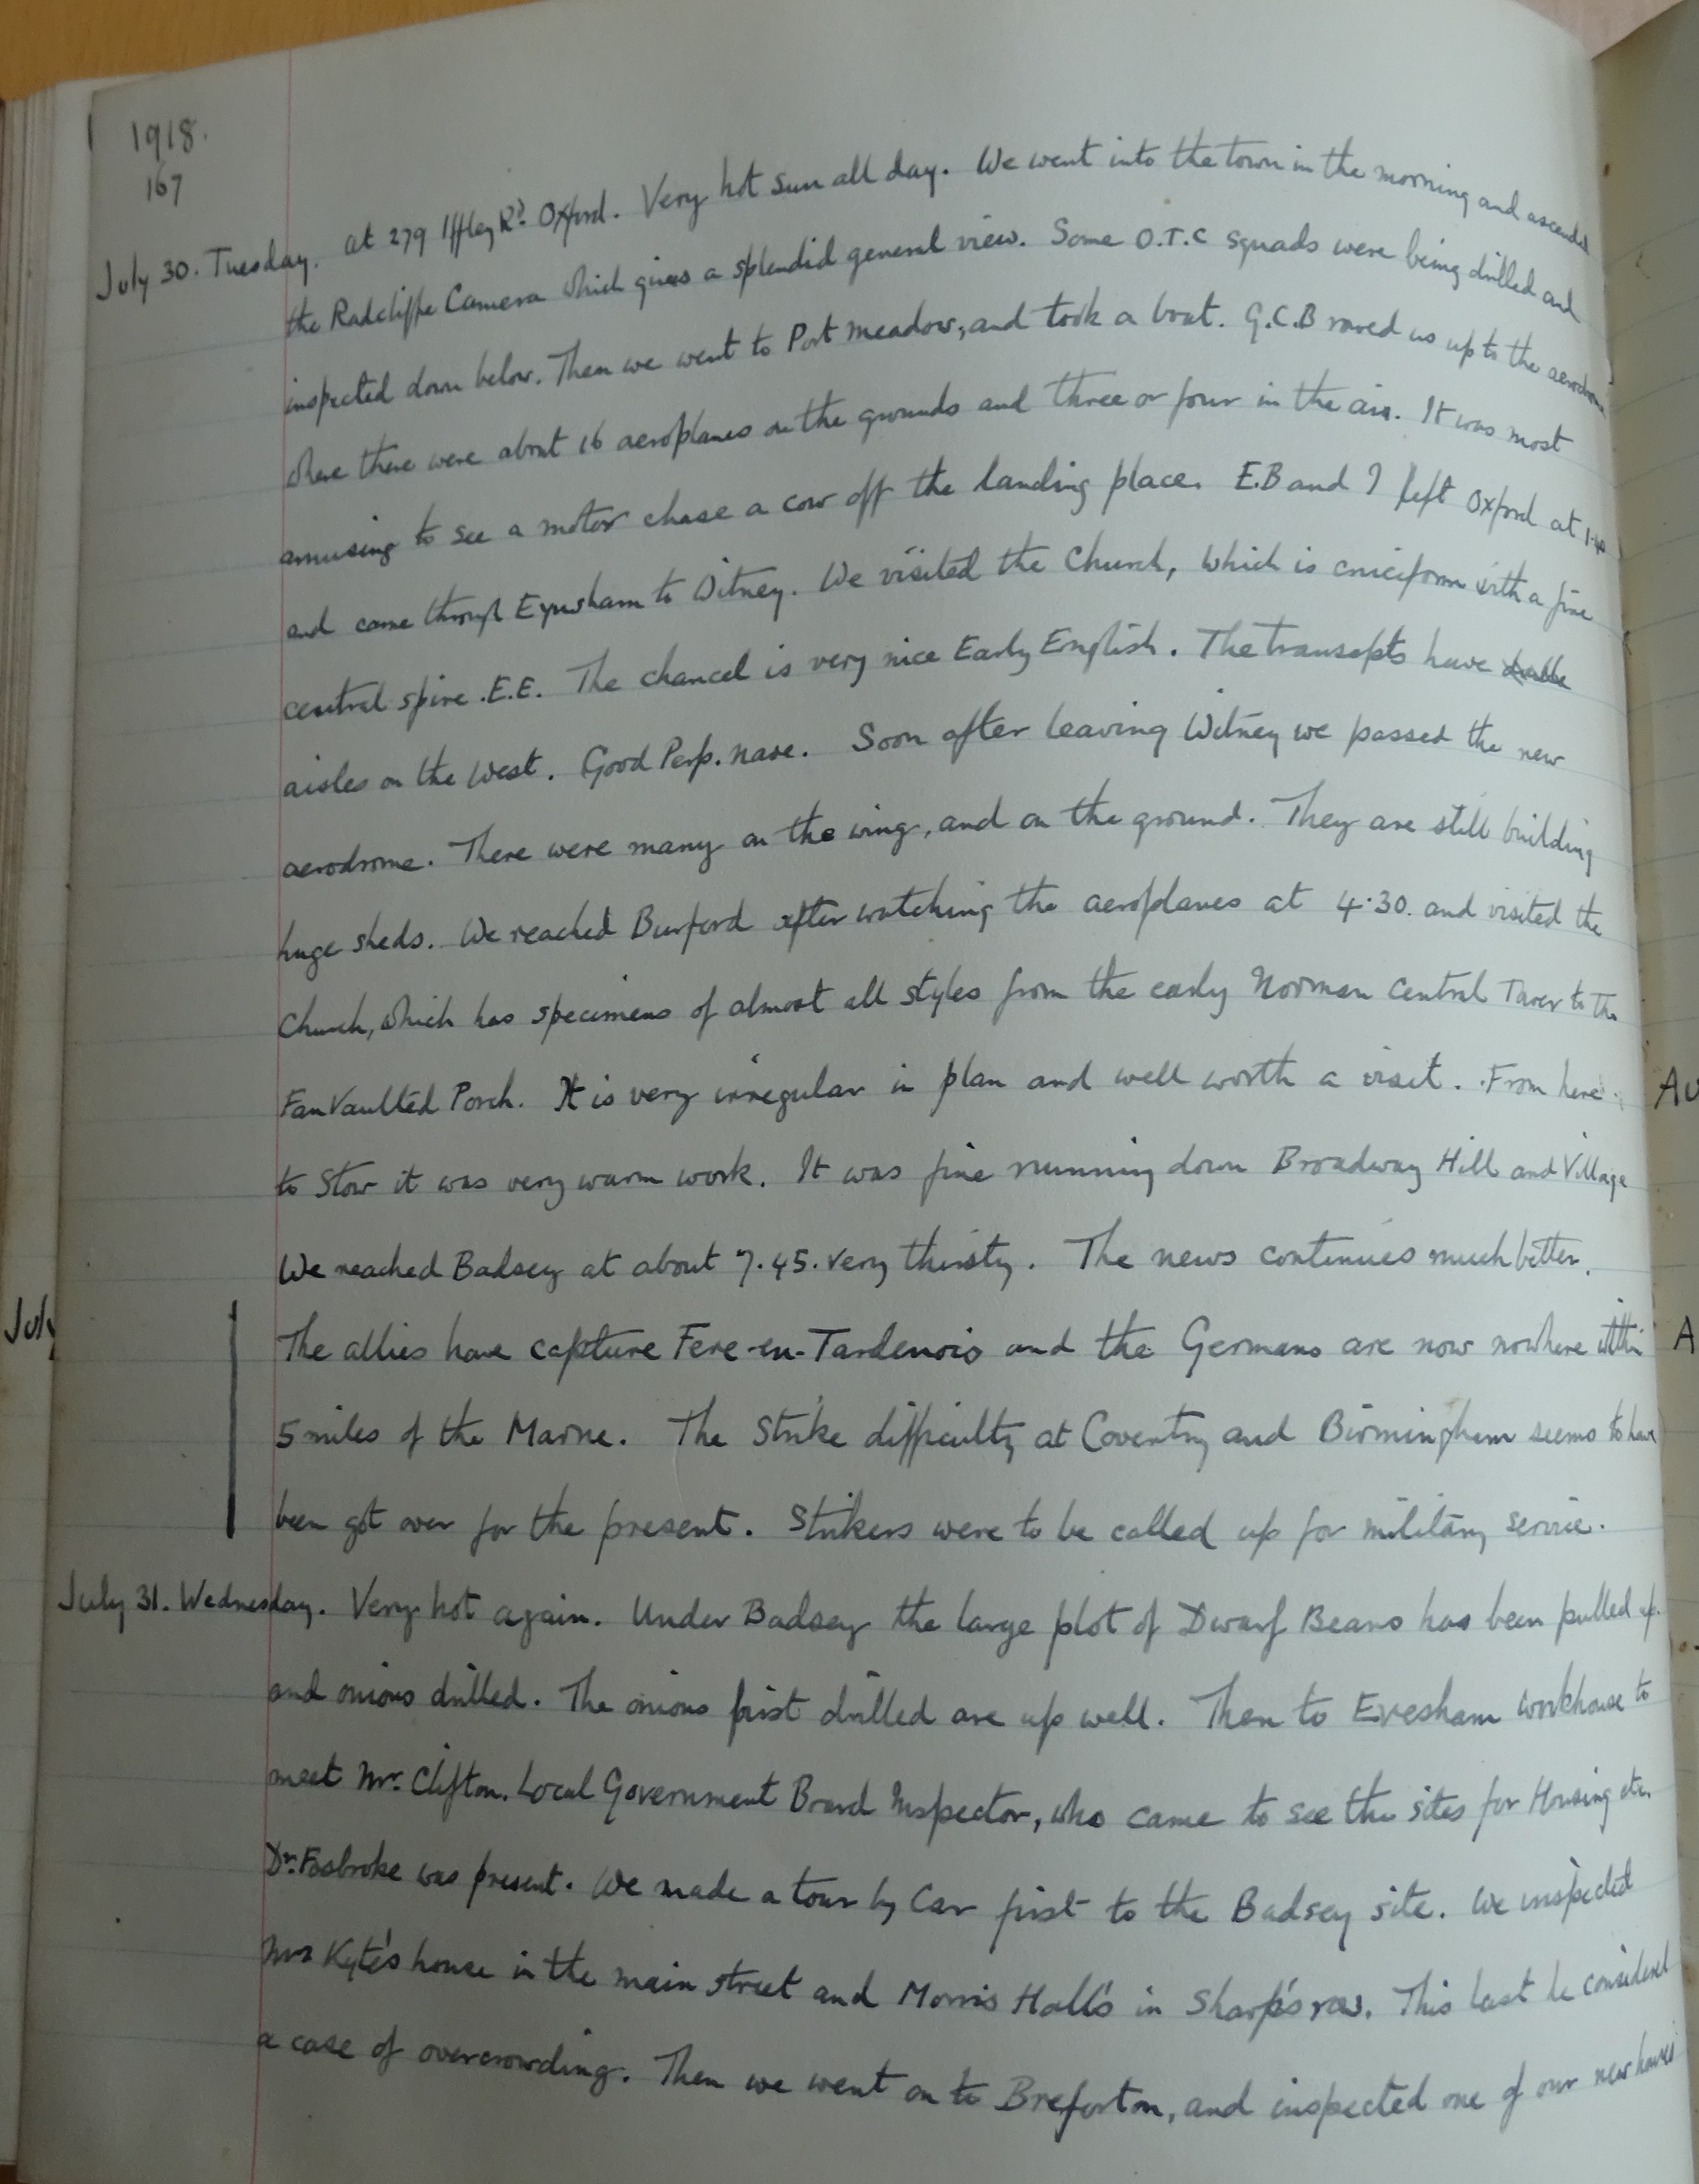 1918.
167
July 30. Tuesday. at 279 Iffley Rd. Oxford. Very hot sun all day. We went into the town in the morning and ascended
the Radcliffe Camera which gives a splendid general view. Some O.T.C squads were being drilled and
inspected down below. Then we went to Port meadow, and took a boat. G.C.B rowed us up to the aerodrome
where there were about 16 aeroplanes on the grounds and three or four in the air. It was most
amusing to see a motor chase a cow off the landing place. E.B and I left Oxford at 1.40
and came through Eynsham to Witney. We visited the Church, which is cruciform with a fine
central spire .E.E. The chancel is very nice Early English. The transepts have double
aisles on the West. Good Perp. nave. Soon after leaving Witney we passed the new
aerodrome. There were many on the wing, and on the ground. They are still building
huge sheds. We reached Burford after watching the aeroplanes at 4.30. and visited the
Church, which has specimens of almost all styles from the early Norman Central Tower to the
Fan Vaulted Porch. It is very irregular in plan and well worth a visit. From here
to Stow it was very warm work. It was fine running down Broadway Hill and Village
We reached Badsey at about 7.45. very thirsty. The news continues much better.
The allies have capture Fere-en-Tardenois and the Germans are now nowhere within
5 miles of the Marne. The Strike difficulty at Coventry and Birmingham seems to have
been got over for the present. Strikers were to be called up for military service.
July 31. Wednesday. Very hot again. Under Badsey the large plot of Dwarf Beans has been pulled up
and onions drilled. The onions first drilled are up well. Then to Evesham workhouse to
meet Mr. Clifton. Local Government Board Inspector, who came to see the sites for Housing etc.
Dr. Fosbroke was present. We made a tour by Car first to the Badsey site. We inspected
Mrs Kyte's house in the main street and Morris Hall's in Sharp's row. This last he considered
a case of overcrowding. Then we went on to Breforton, and inspected one of our new houses
July
Au
A